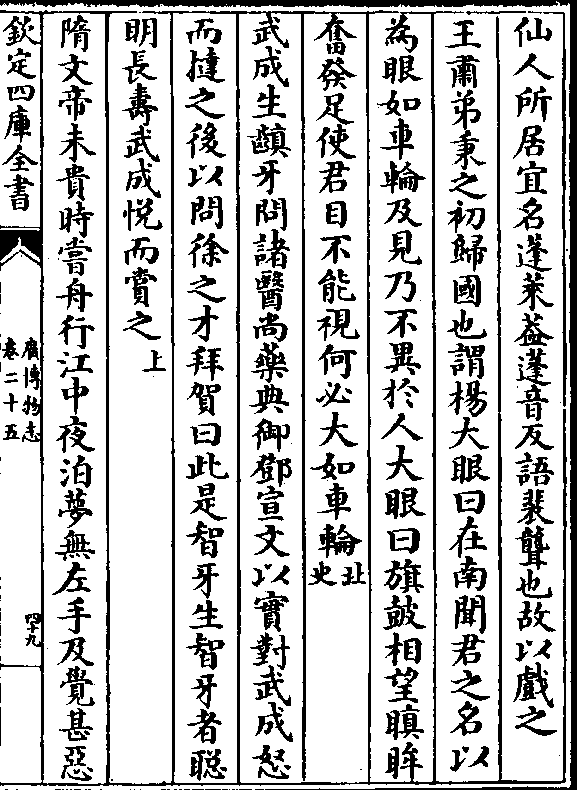 仙人所居宜名蓬萊葢蓬音反語裴聾也故以戲之
王肅弟秉之初歸國也謂楊大眼曰在南聞君之名以
為眼如車輪及見乃不異於人大眼曰旗鼓相望瞋眸
奮發足使君目不能視何必大如車輪北史
武成生齻牙問諸醫尚藥典御鄧宣文以實對武成怒
而撻之後以問徐之才拜賀曰此是智牙生智牙者聪
明長壽武成悅而賞之上
隋文帝未貴時嘗舟行江中夜泊夢無左手及覺甚惡
欽定四庫全書
廣博物志
卷二十五
四十九